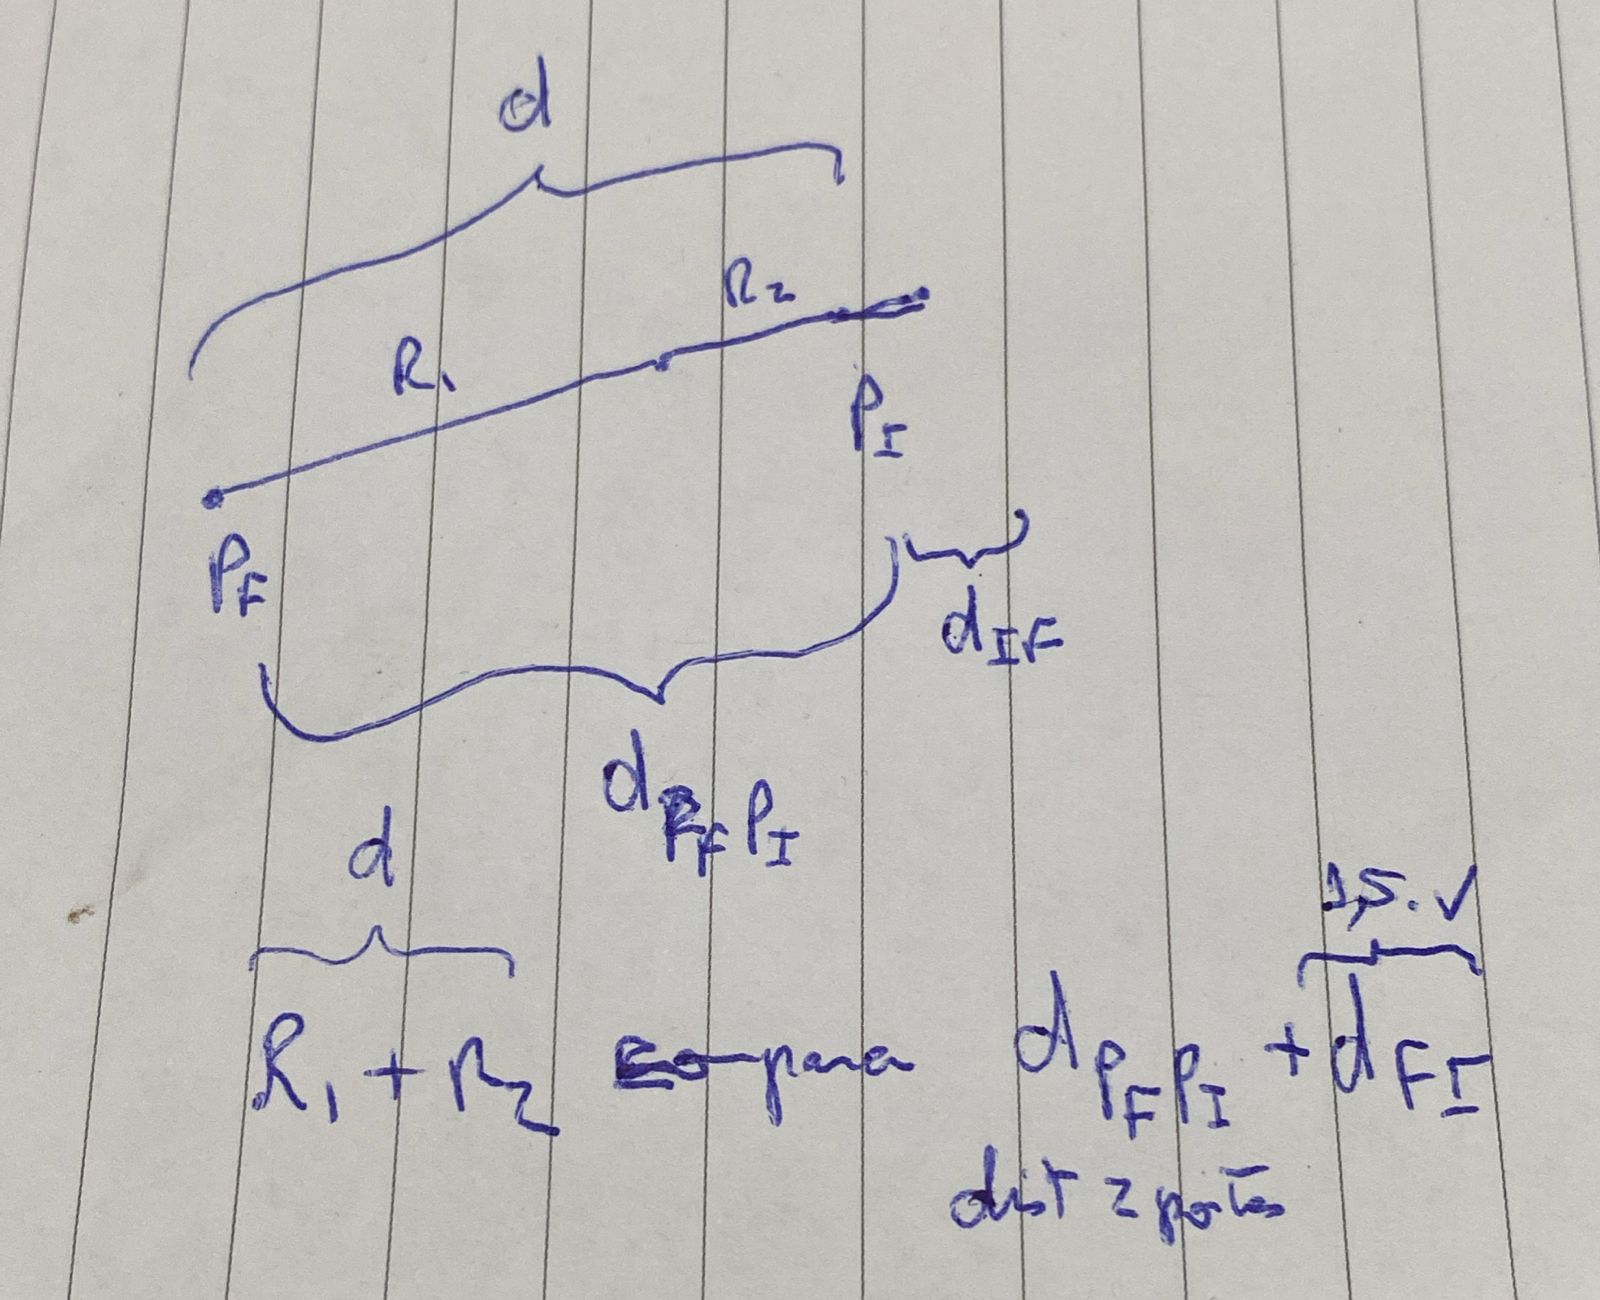 d
R₂
R₁
P_I
P_F
d_IF
d_{P_F P_I}
d
1,5.√
R₁ + R₂ compara d_{P_F P_I} + d_FI
dist 2 pontos